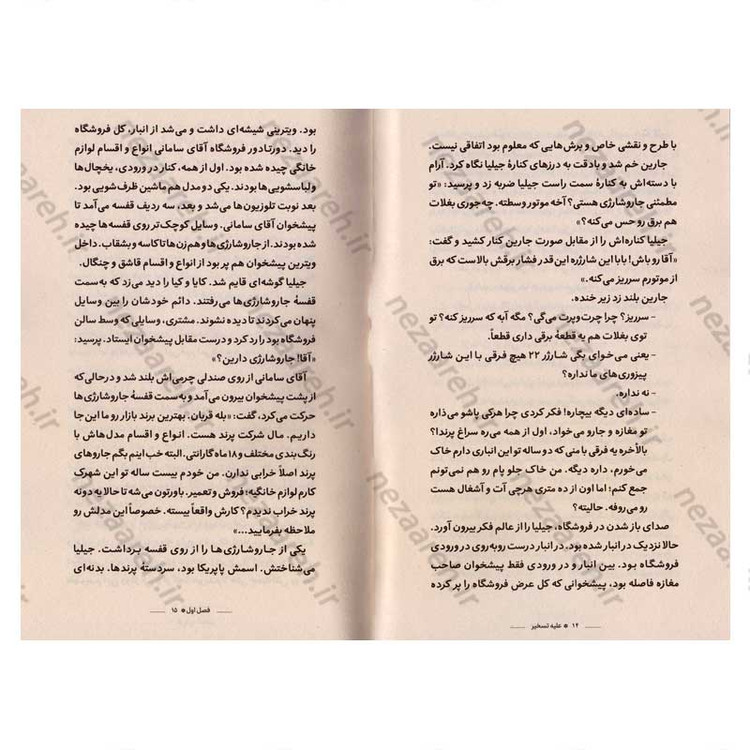 با طرح و نقشی خاص و برش‌هایی که معلوم بود اتفاقی نیست.
جارین خم شد و بادقت به درزهای کنارهٔ جیلیا نگاه کرد. آرام
با دسته‌اش به کنارهٔ سمت راست جیلیا ضربه زد و پرسید: «تو
مطمئنی جاروشارژی هستی؟ آخه موتور وسطته. چه‌جوری بغلات
هم برق رو حس می‌کنه؟»
جیلیا کناره‌اش را از مقابل صورت جارین کنار کشید و گفت:
«آقا رو باش! بابا این شارژره این قدر فشار برقش بالاست که برق
از موتورم سرریز می‌کنه.»
جارین بلند زد زیر خنده.
– سرریز؟ چرا چرت‌وپرت می‌گی؟ مگه آبه که سرریز کنه؟ تو
توی بغلات هم یه قطعهٔ برقی داری قطعاً.
– یعنی می‌خوای بگی شارژر ۲۲ هیچ فرقی با این شارژر
پیزوری‌های ما نداره؟
– نه نداره.
– ساده‌ای دیگه بیچاره! فکر کردی چرا هرکی پاشو می‌ذاره
تو مغازه و جارو می‌خواد، اول از همه می‌ره سراغ پرندا؟
بالأخره یه فرقی با منی که دو ساله تو این انباری دارم خاک
می‌خورم، داره دیگه. من خاک جلو پام رو هم نمی‌تونم
جمع کنم؛ اما اون از ده متری هرچی آت و آشغال هست
رو می‌روفه. حالیته؟
صدای باز شدن در فروشگاه، جیلیا را از عالم فکر بیرون آورد.
حالا نزدیک در انبار شده بود. در انبار درست روبه‌روی در ورودی
فروشگاه بود. بین انبار و در ورودی فقط پیشخوان صاحب
مغازه فاصله بود، پیشخوانی که کل عرض فروشگاه را پر کرده
۱۴ * علیه تسخیر
بود. ویترینی شیشه‌ای داشت و می‌شد از انبار، کل فروشگاه
را دید. دورتادور فروشگاه آقای سامانی انواع و اقسام لوازم
خانگی چیده شده بود. اول از همه، کنار در ورودی، یخچال‌ها
ولباسشویی‌ها بودند. یکی دو مدل هم ماشین ظرف‌شویی بود.
بعد نوبت تلوزیون‌ها می‌شد و بعد، سه ردیف قفسه می‌آمد تا
پیشخوان آقای سامانی. وسایل کوچک‌تر روی قفسه‌ها چیده
شده بودند. از جاروشارژی‌ها و هم‌زن‌ها تا کاسه و بشقاب. داخل
ویترین پیشخوان هم پر بود از انواع و اقسام قاشق و چنگال.
جیلیا گوشه‌ای قایم شد. کایا و کیا را دید می‌زد که به سمت
قفسهٔ جاروشارژی‌ها می‌رفتند. دائم خودشان را بین وسایل
پنهان می‌کردند تا دیده نشوند. مشتری، وسایلی که وسط سالن
فروشگاه بود را رد کرد و درست مقابل پیشخوان ایستاد. پرسید:
«آقا! جاروشارژی دارین؟»
آقای سامانی از روی صندلی چرمی‌اش بلند شد و درحالی‌که
از پشت پیشخوان بیرون می‌آمد و به سمت قفسهٔ جاروشارژی‌ها
حرکت می‌کرد، گفت: «بله قربان. بهترین برند بازار رو ما این جا
داریم. مال شرکت پرند هست. انواع و اقسام مدل‌هاش با
رنگ‌بندی مختلف و ۱۸ ماه گارانتی. البته خب اینم بگم جاروهای
پرند اصلاً خرابی ندارن. من خودم بیست ساله تو این شهرک
کارم لوازم خانگیه؛ فروش و تعمیر. باورتون می‌شه تا حالا یه دونه
پرند خراب ندیدم؟ کارش واقعاً بیسته. خصوصاً این مدلش رو
ملاحظه بفرمایید...»
یکی از جاروشارژی‌ها را از روی قفسه برداشت. جیلیا
می‌شناختش. اسمش پاپریکا بود، سردستهٔ پرندها. بدنه‌ای
فصل اول * ۱۵
nezaareh.ir